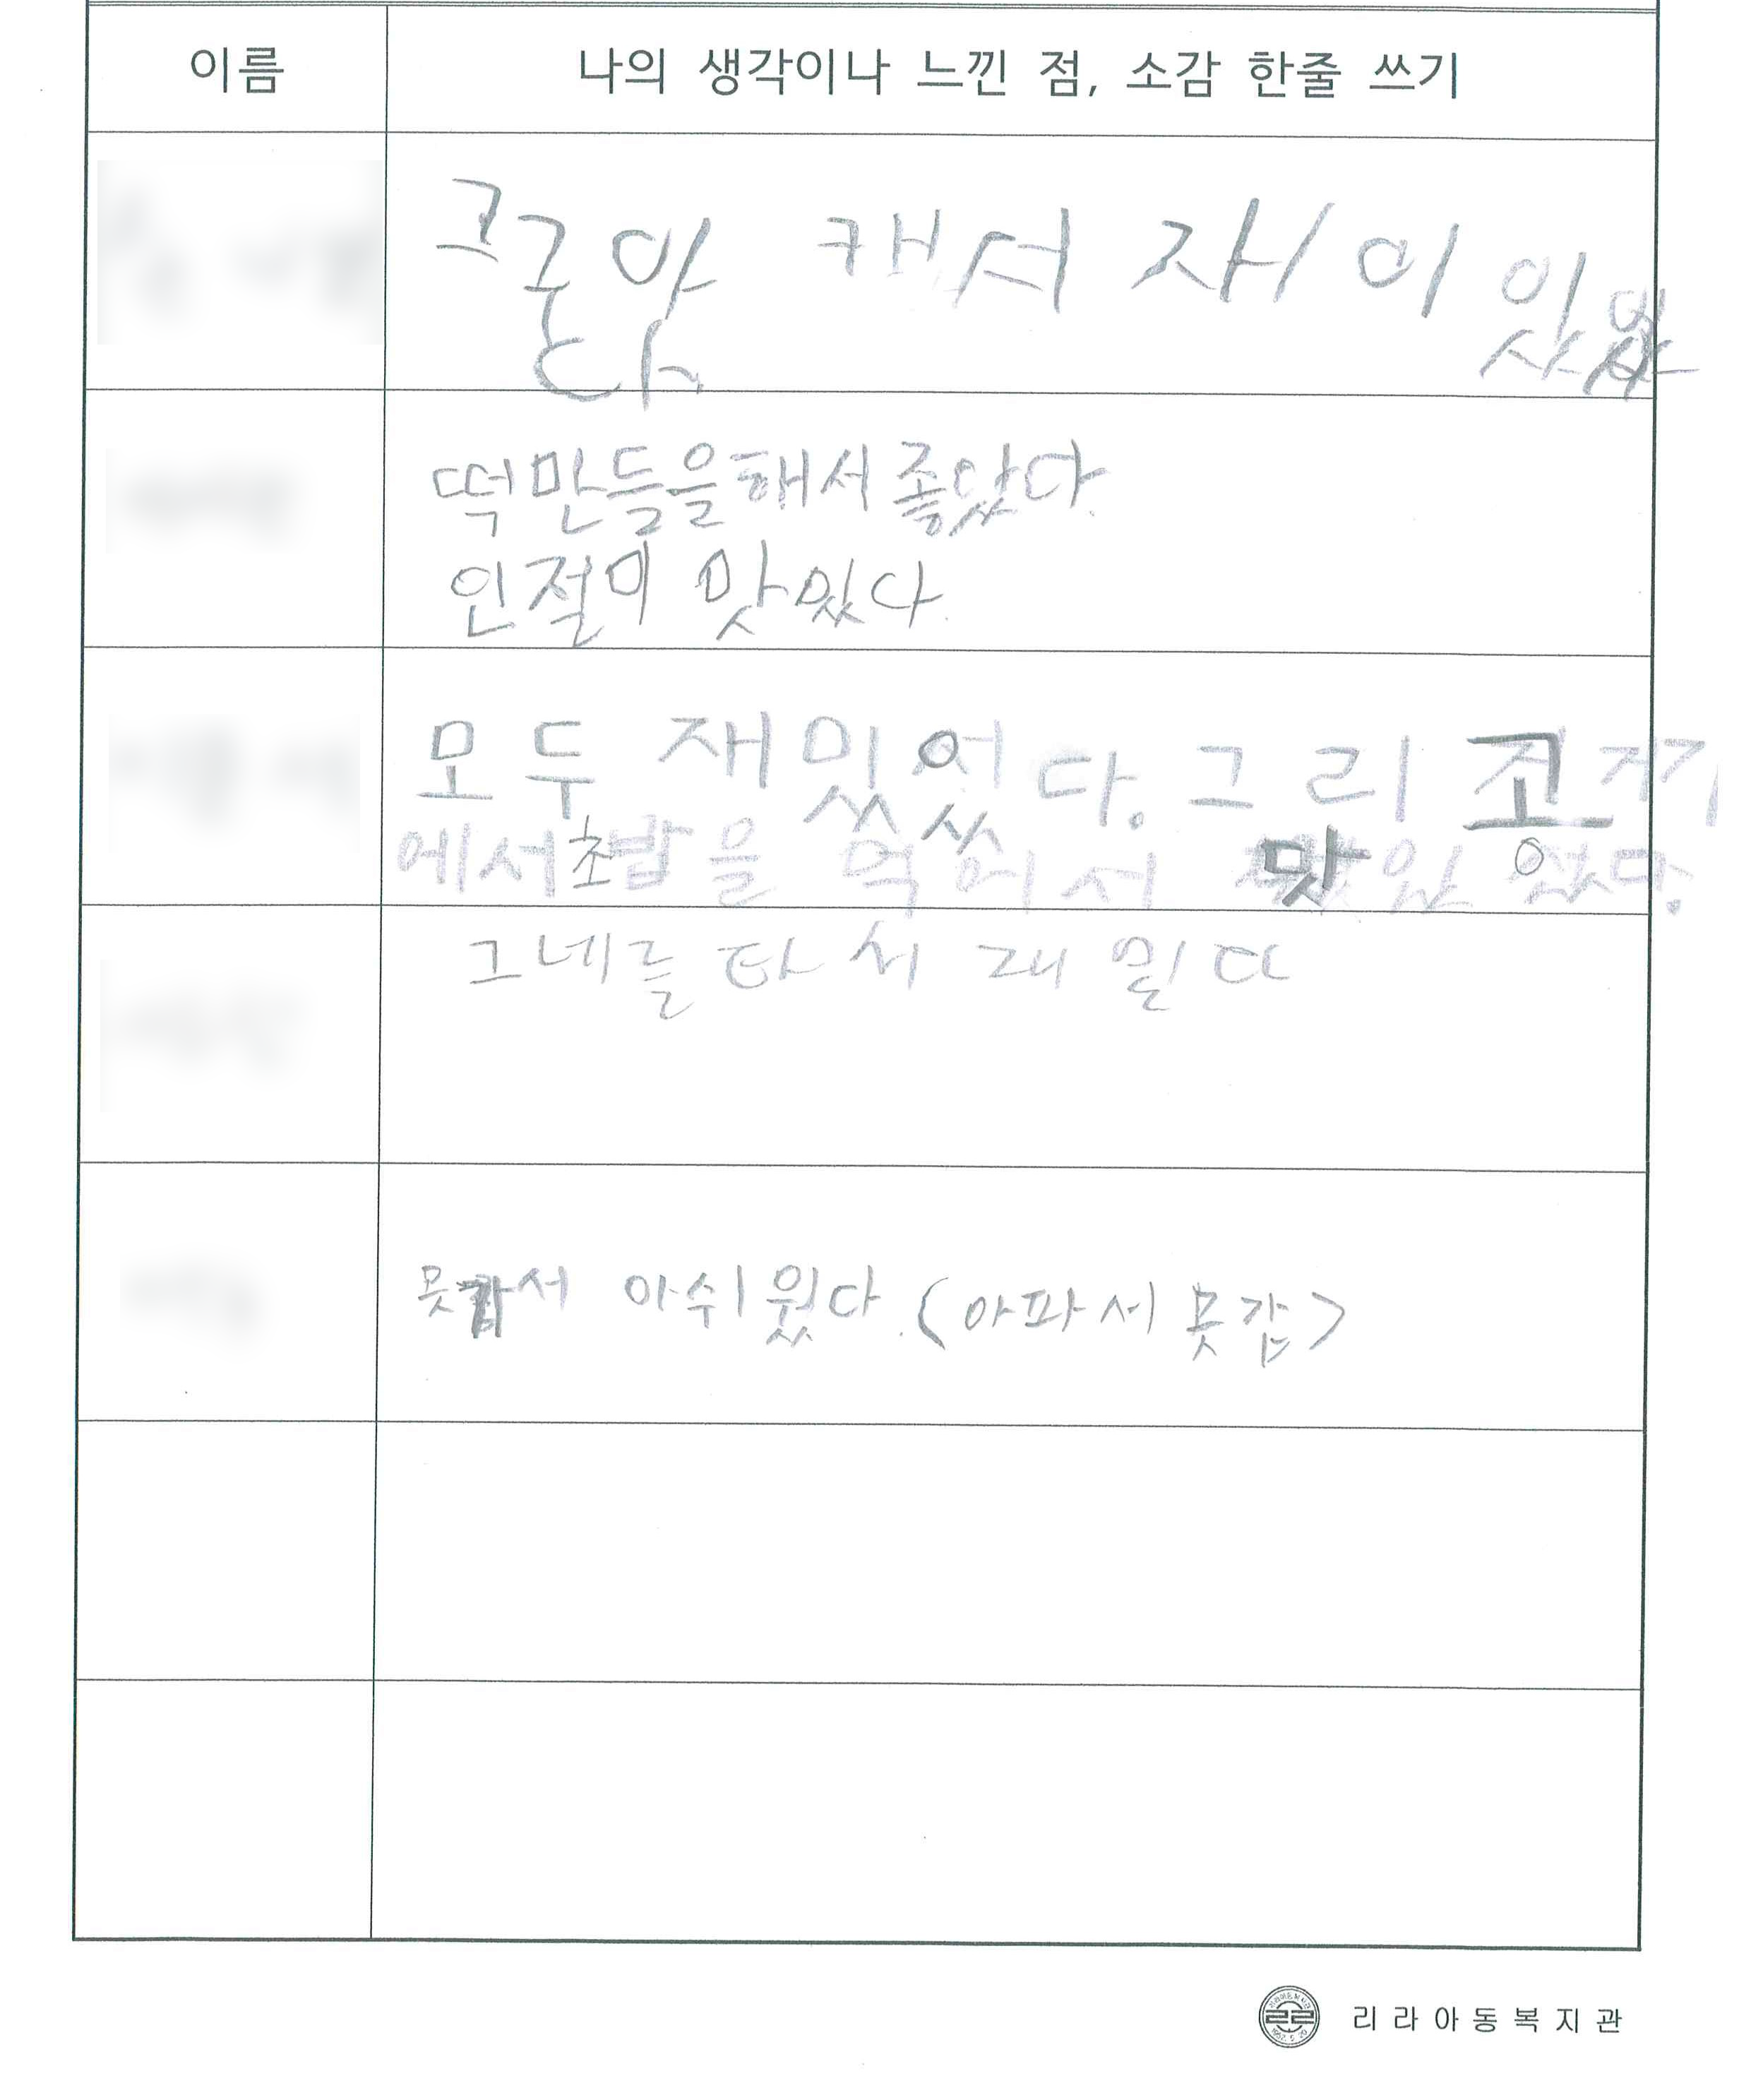 이름
나의 생각이나 느낀 점, 소감 한줄 쓰기
캐서 자이
떡만들을해서좋았다.
인절미 맛있다.
모두 재밌었다. 그리고
에서초밥을 먹어서 맛있었다.
그네를 타서
못 서 아쉬웠다. (아파서 못감)
리라아동복지관